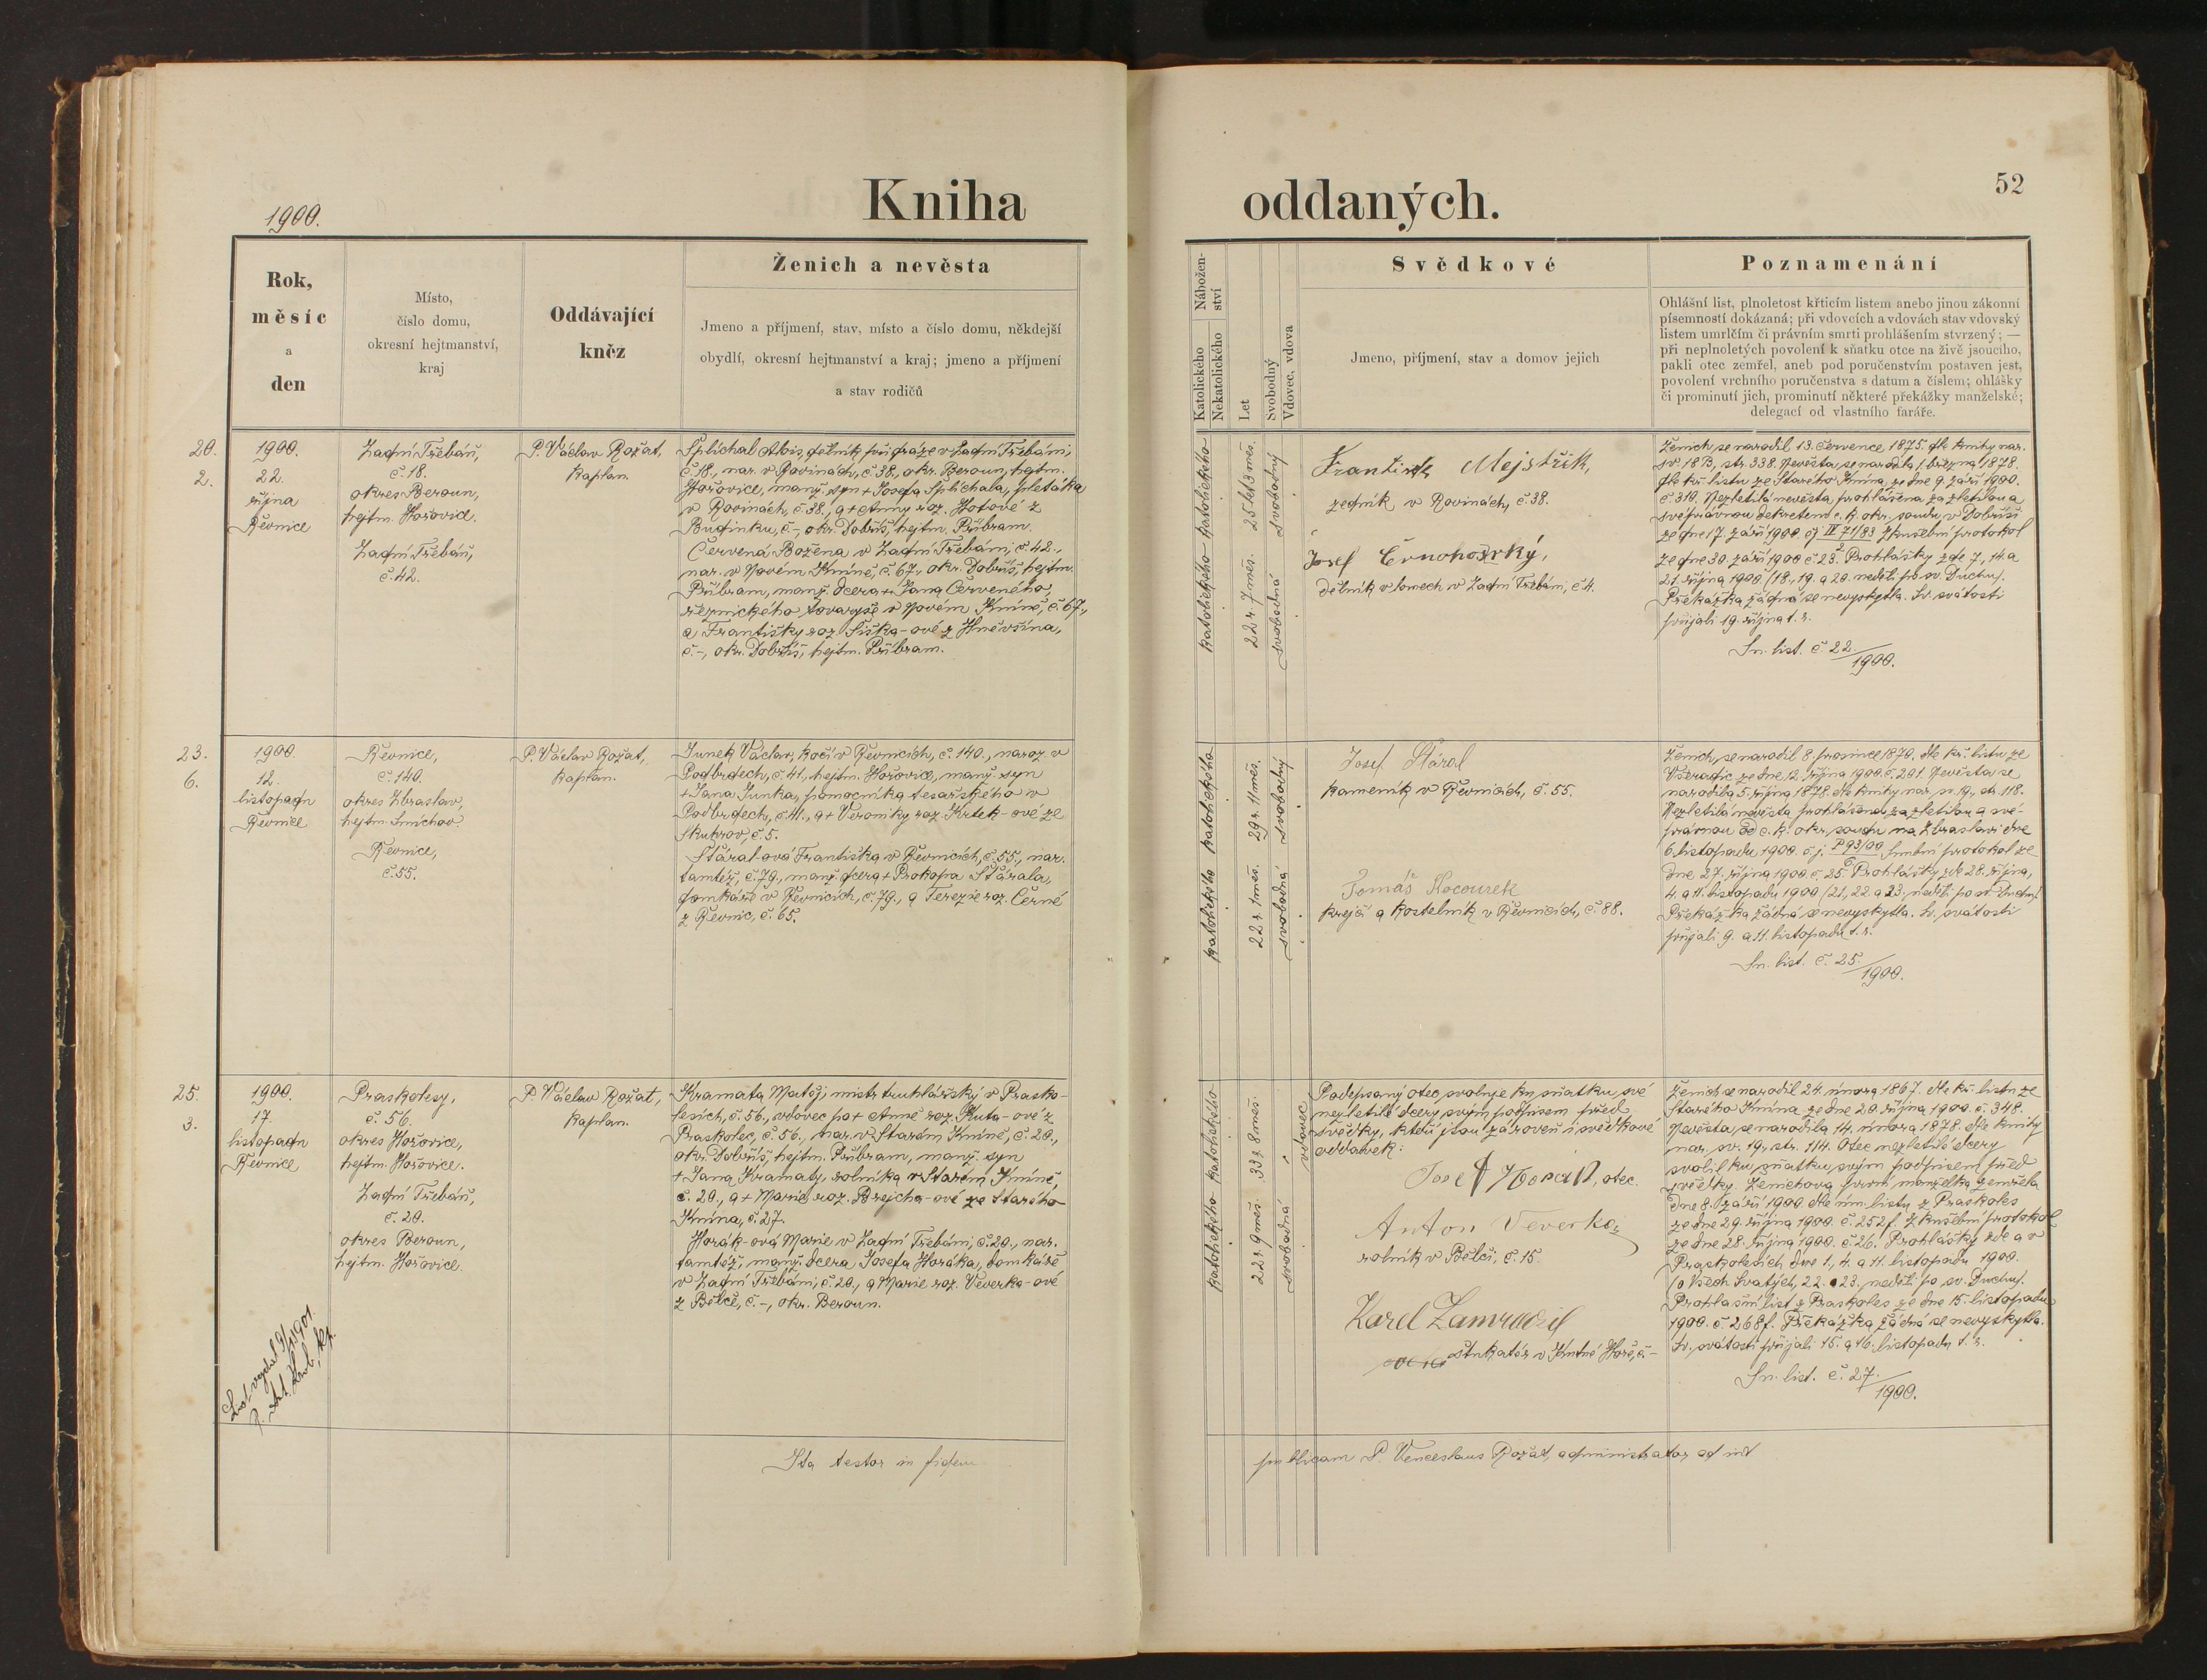 Kniha
oddaných.
52
1900.
Rok,
měsíc
a
den
Místo,
číslo domu,
okresní hejtmanství,
kraj
Oddávající
kněz
Ženich a nevěsta
Jmeno a příjmení, stav, místo a číslo domu, někdejší
obydlí, okresní hejtmanství a kraj; jmeno a příjmení
a stav rodičů
Nábožen-
ství
Katolického
Nekatolického
Let
Svobodný
Vdovec, vdova
Svědkové
Jmeno, příjmení, stav a domov jejich
Poznamenání
Ohlášní list, plnoletost křticím listem anebo jinou zákonní
písemností dokázaná; při vdovcích a vdovách stav vdovský
listem umrlčím či právním smrti prohlášením stvrzený; —
při neplnoletých povolení k sňatku otce na živě jsoucího,
pakli otec zemřel, aneb pod poručenstvím postaven jest,
povolení vrchního poručenstva s datum a číslem; ohlášky
či prominutí jich, prominutí některé překážky manželské;
delegací od vlastního faráře.
20.
2.
1900.
22.
října
Řevnice
Zadní Třebáň,
č. 18.
okres Beroun,
hejtm. Hořovice.
Zadní Třebáň,
č. 42.
P. Václav Rožat,
kaplan.
Šplíchal Alois, dělník při dráze v Zadní Třebáni,
č. 18., nar. v Rovinách, č. 38., okr. Beroun, hejtm.
Hořovice, manž. syn + Josefa Šplíchala, pletáka
v Rovinách, č. 38., a + Anny roz. Hotové z
Budínku, č. -, okr. Dobříš, hejtm. Příbram.
Červená Božena v Zadní Třebáni, č. 42.,
nar. v Novém Kníně, č. 67., okr. Dobříš, hejtm.
Příbram, manž. dcera + Jana Červeného,
řeznického tovaryše v Novém Kníně, č. 67.,
a Františky roz. Šiška-ové z Hněvšína,
č. -, okr. Dobříš, hejtm. Příbram.
katolického katolického
22 r. 7 měs. 25 let 3 měs.
svobodná svobodný
František Mejstřík
zedník v Rovinách, č. 38.
Josef Črnohorký,
dělník v lomech v Zadní Třebáni, č. 4.
Ženich se narodil 13. července 1875. dle knihy nar.
sv. 18 B, str. 338. Nevěsta se narodila 1. března 1878.
dle kř. listu ze Starého Knína, ze dne 9. září 1900.
č. 310. Nezletilá nevěsta prohlášena za zletilou a
svéprávnou dekretem c. k. okr. soudu v Dobříši
ze dne 17. září 1900. čj. IV 71/83 Zkušební protokol
2
ze dne 30. září 1900 č. 23. Prohlášky zde 7., 14. a
21. října 1900 /18., 19. a 20. neděli po sv. Duchu/.
Překážka žádná se nevyskytla. Sv. svátosti
přijali 19. října t. r.
Sn. list. č. 22./1900.
23.
6.
1900.
12.
listopadu
Řevnice
Řevnice,
č. 140.
okres Zbraslav,
hejtm. Smíchov.
Řevnice,
č. 55.
P. Václav Rožat,
kaplan.
Junek Václav, kočí v Řevnicích, č. 140., naroz. v
Podbrdech, č. 41., hejtm. Hořovice, manž. syn
+ Jana Junka, pomocníka tesařského v
Podbrdech, č. 41., a + Veroniky roz. Krtek-ové ze
Skuhrov, č. 5.
Stáral-ová Františka v Řevnicích, č. 55., nar.
tamtéž, č. 79., manž. dcera + Prokopa Stárala,
domkáře v Řevnicích, č. 79., a Terezie roz. Černé
z Řevnic, č. 65.
katolického katolického
22 r. 1 měs. 29 r. 11 měs.
svobodná svobodný
Josef Stáral
kameník v Řevnicích, č. 55.
Tomáš Kocourek
krejčí a kostelník v Řevnicích, č. 88.
Ženich se narodil 8. prosince 1870. dle kř. listu ze
Všeradic ze dne 12. října 1900. č. 201. Nevěsta se
narodila 5. října 1878. dle knihy nar. sv. 19., str. 118.
Nezletilá nevěsta prohlášena za zletilou a své-
právnou od c. k. okr. soudu na Zbraslavi dne
6. listopadu 1900. čj. P 93/00 Snubní protokol ze
6
dne 27. října 1900. č. 25. Prohlášky zde 28. října,
4. a 11. listopadu 1900 /21., 22. a 23. neděli po sv. Duchu/.
Překážka žádná se nevyskytla. Sv. svátosti
přijali 9. a 11. listopadu t. r.
Sn. list. č. 25./1900.
25.
3.
1900.
17.
listopadu
Řevnice
Praskolesy,
č. 56.
okres Hořovice,
hejtm. Hořovice.
Zadní Třebáň,
č. 20.
okres Beroun,
hejtm. Hořovice.
P. Václav Rožat,
kaplan.
Kramata Matěj, mistr truhlářský v Prasko-
lesích, č. 56., vdovec po + Anně roz. Kuta-ové z
Praskoles, č. 56., nar. v Starém Kníně, č. 20.,
okr. Dobříš, hejtm. Příbram, manž. syn
+ Jana Kramaty, rolníka v Starém Kníně,
č. 20., a + Marie roz. Brejcha-ové ze Starého
Knína, č. 27.
Horák-ová Marie v Zadní Třebáni, č. 20., nar.
tamtéž, manž. dcera Josefa Horáka, domkáře
v Zadní Třebáni, č. 20., a Marie roz. Veverka-ové
z Bělče, č. -, okr. Beroun.
katolického katolického
22 r. 9 měs. 33 r. 8 měs.
svobodná
vdovec
Podepsaný otec svoluje ku sňatku své
nezletilé dcery svým podpisem před
svědky, kteří jsou zároveň i svědkové
oddavek:
Josef Horák, otec.
Anton Veverka,
rolník v Bělči, č. 15.
Karel Zamrazil
štukatér v Kutné Hoře, č. -
Ženich se narodil 24. února 1867. dle kř. listu ze
Starého Knína ze dne 20. října 1900. č. 348.
Nevěsta se narodila 14. února 1878. dle knihy
nar. sv. 19., str. 114. Otec nezletilé dcery
svolil ku sňatku svým podpisem před
svědky. Ženichova první manželka zemřela
dne 8. září 1900 dle úm. listu z Praskoles
ze dne 29. října 1900. č. 252 f. Zkušební protokol
ze dne 28. října 1900. č. 26. Prohlášky zde a v
Praskolesích dne 1., 4. a 11. listopadu 1900.
/o Všech Svatých, 22. a 23. neděli po sv. Duchu/.
Prohlašní list z Praskoles ze dne 15. listopadu
1900. č. 268 f. Překážka žádná se nevyskytla.
Sv. svátosti přijali 15. a 16. listopadu t. r.
Sn. list. č. 27./1900.
List vydal 1901.
Ita testor in fidem
publicam P. Venceslaus Rožát, administrator ad int